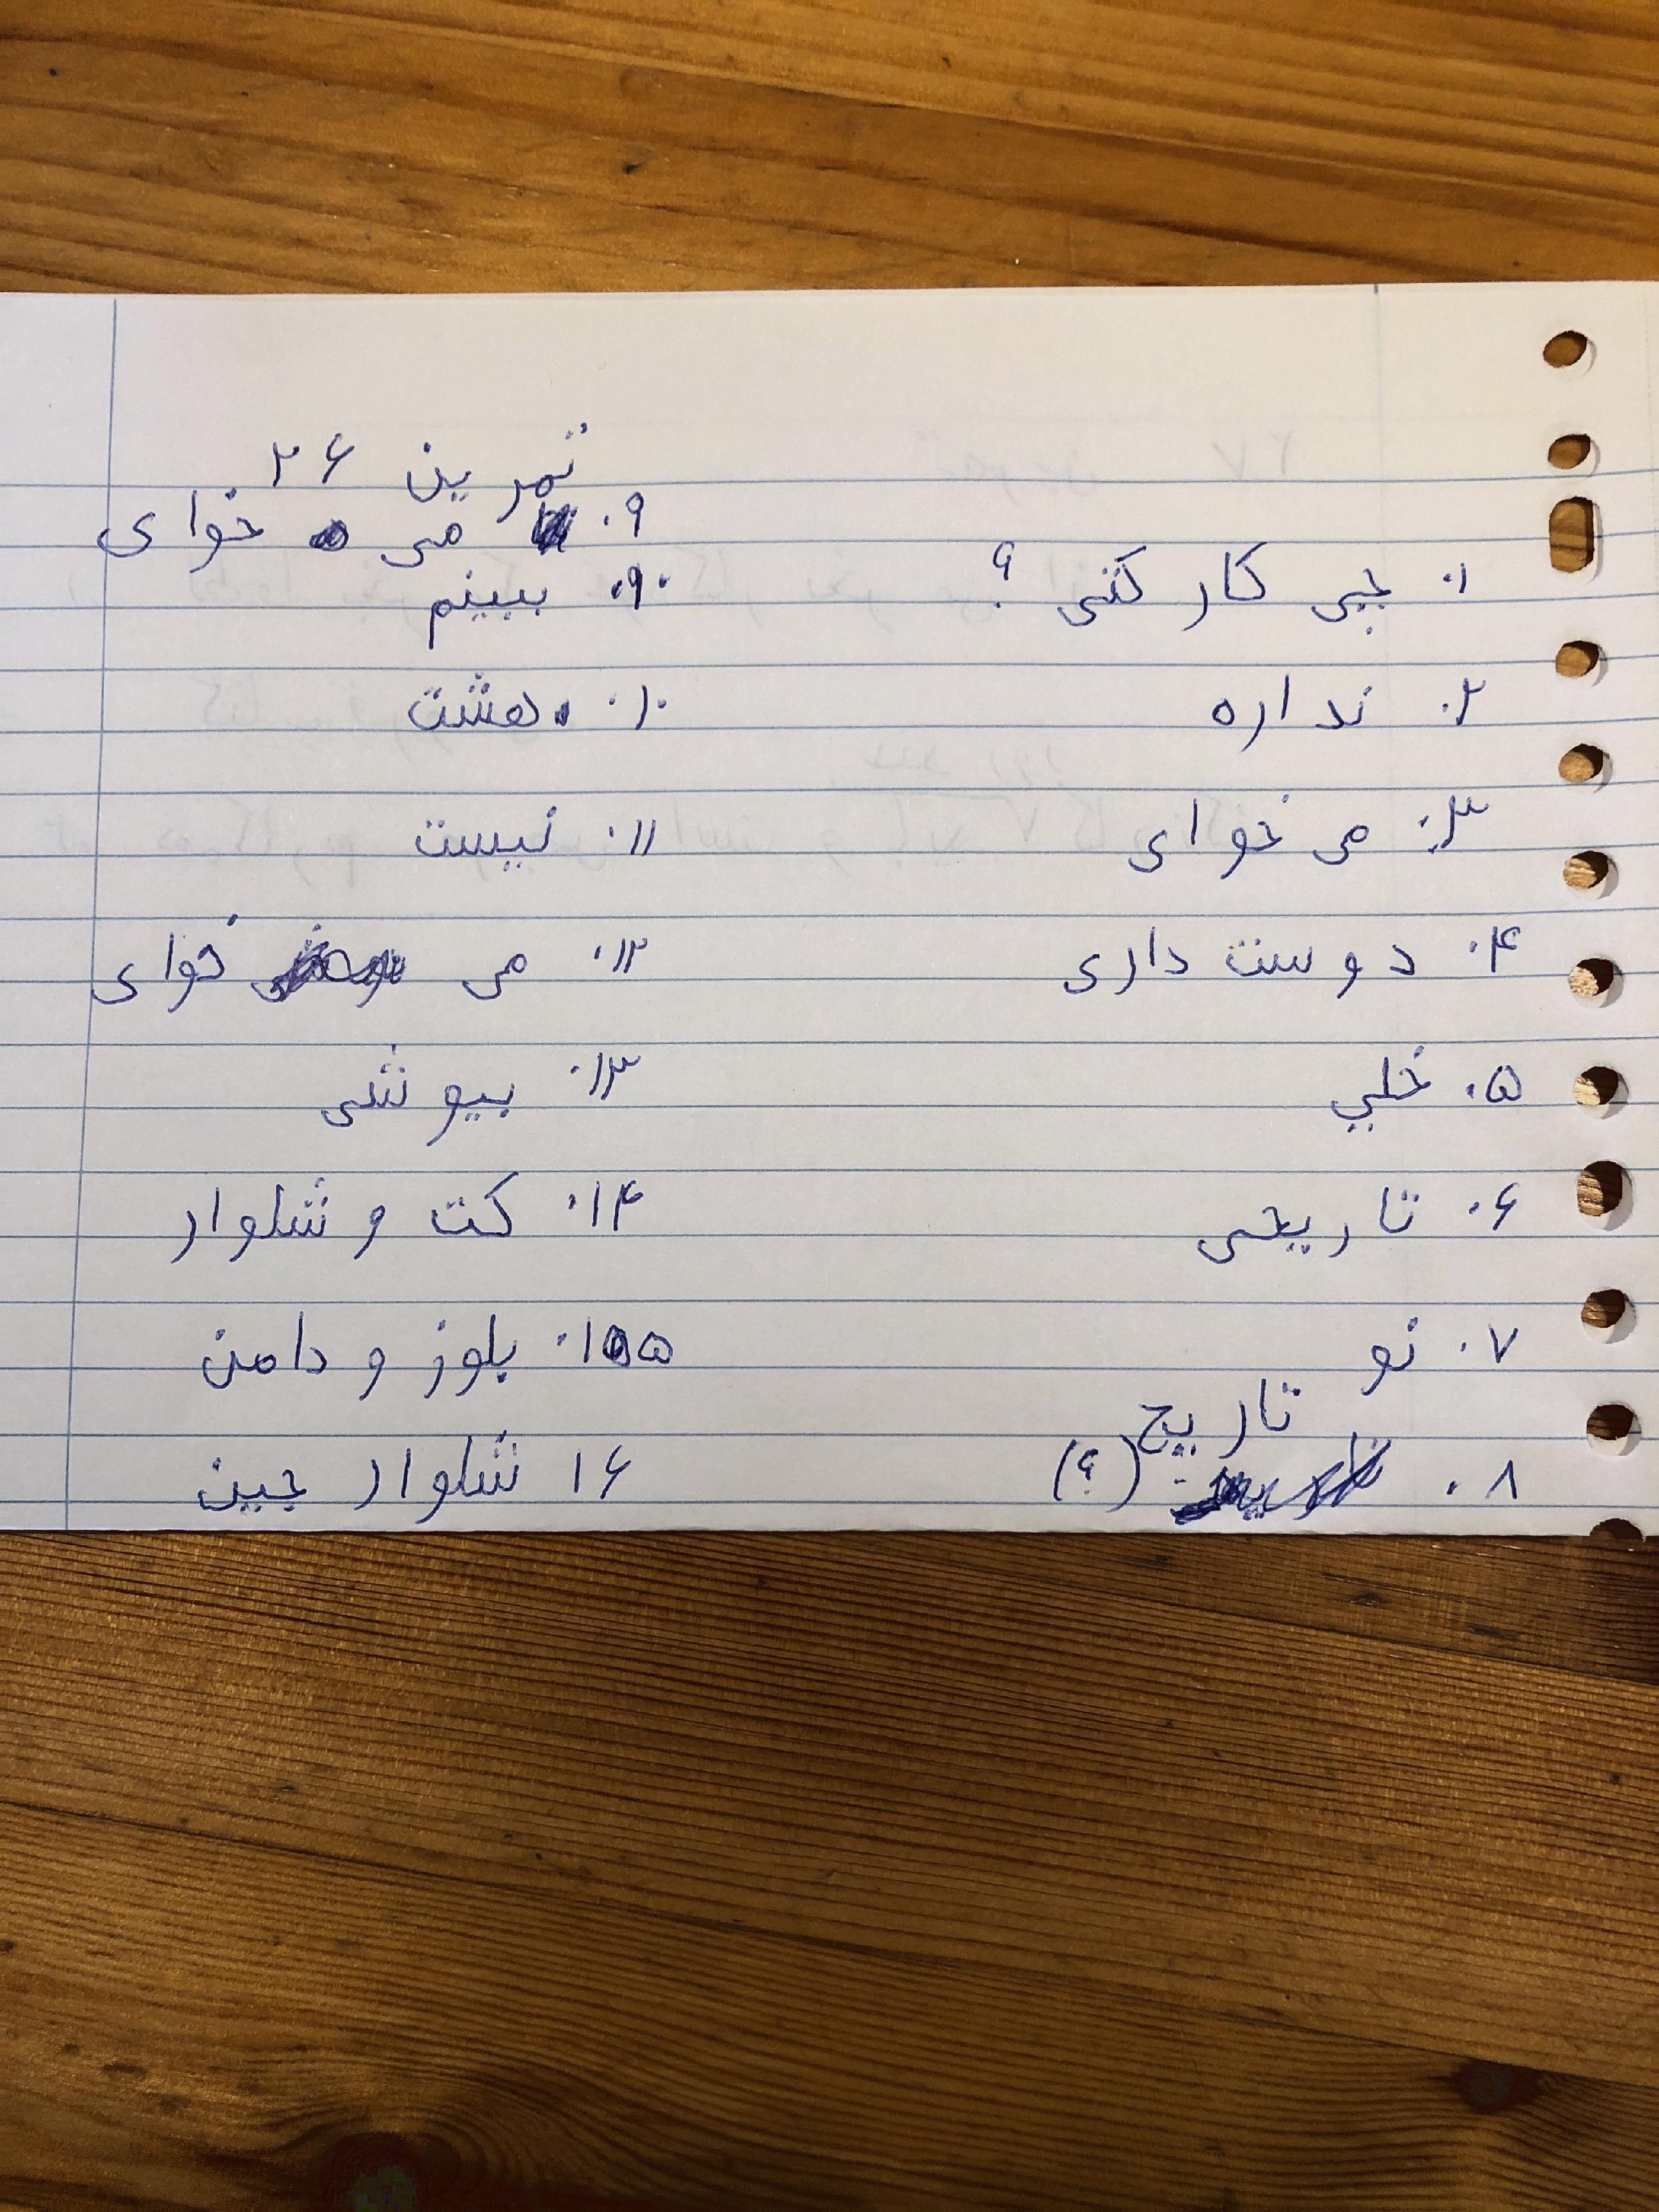 تمرین ۲۶
۱. چی کار کنی؟
۲. نداره
۳. می خوای
۴. دوست داری
۵. خلیي
۶. تاریخی
۷. نو
تاریخ
۸. (؟)
۹. می خوای
۹. ببینم
۱۰. هشت
۱۱. نیست
۱۲. می خوای
۱۳. بپوشی
۱۴. کت و شلوار
۱۵. بلوز و دامن
۱۶ شلوار جین